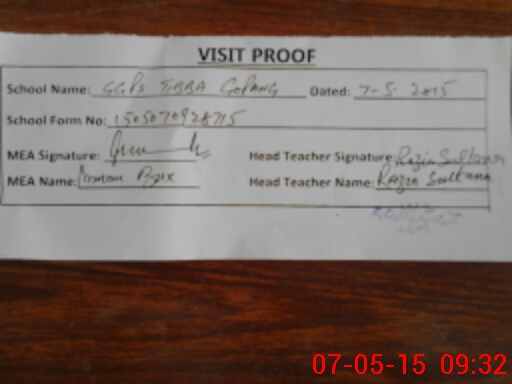 VISIT PROOF
School Name: GGPS TIBBA GOPANG Dated: 7-5-2015
School Form No: 1505070928715
MEA Signature: Head Teacher Signature: Razia Sultana
MEA Name: Bux Head Teacher Name: Razia Sultana
07-05-15 09:32